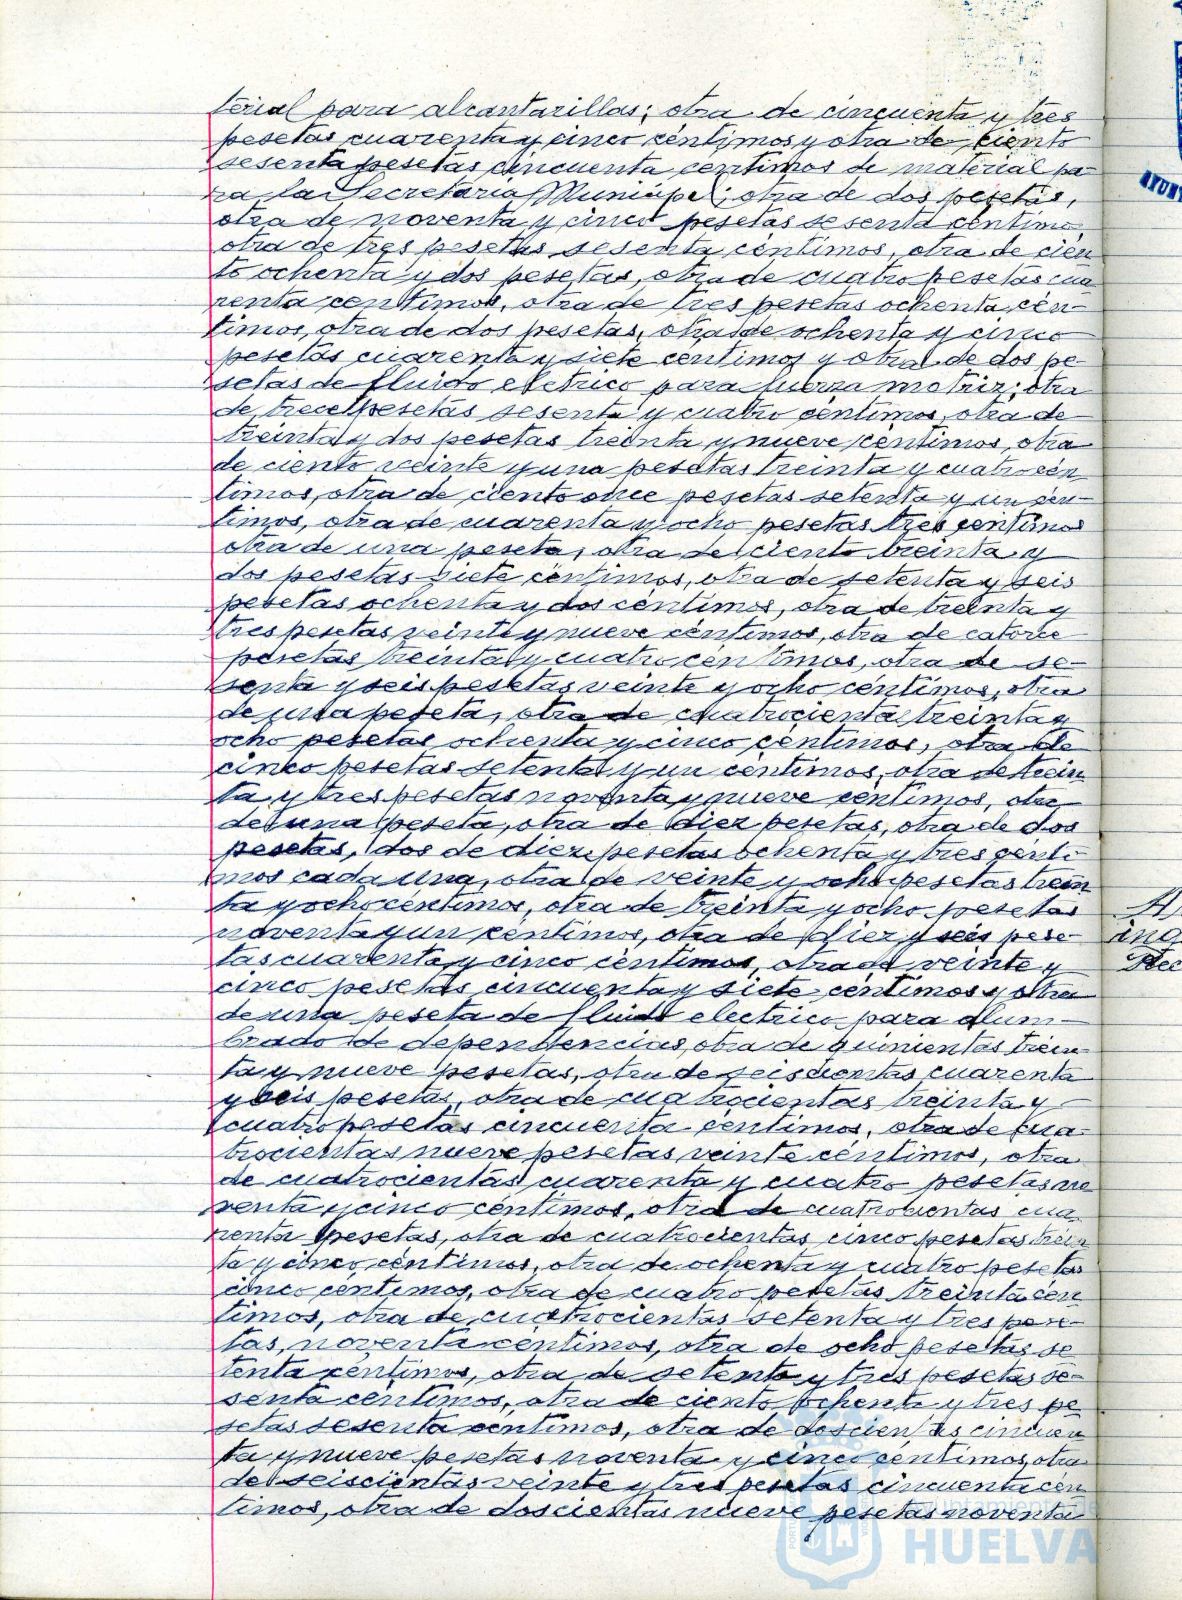 terial para alcantarillas; otra de cincuenta y tres
pesetas cuarenta y cinco céntimos y otra de ciento
sesenta pesetas cincuenta céntimos de material pa-
ra la Secretaria Municipal; otra de dos pesetas,
otra de noventa y cinco pesetas sesenta céntimos,
otra de tres pesetas sesenta céntimos, otra de cien
to ochenta y dos pesetas, otra de cuatro pesetas cua
renta centimos, otra de tres pesetas ochenta cén-
timos, otra de dos pesetas, otra de ochenta y cinco
pesetas cuarenta y siete centimos y otra de dos pe-
setas de fluido eletrico para fuerza motriz; otra
de trece pesetas sesenta y cuatro céntimos, otra de
treinta y dos pesetas treinta y nueve céntimos, otra
de ciento veinte y una pesetas treinta y cuatro cén
timos, otra de ciento once pesetas setenta y un cén-
timos, otra de cuarenta y ocho pesetas tres centimos
otra de una peseta, otra de ciento treinta y
dos pesetas siete céntimos, otra de setenta y seis
pesetas ochenta y dos céntimos, otra de treinta y
tres pesetas veinte y nueve céntimos, otra de catorce
pesetas treinta y cuatro céntimos, otra de se-
senta y seis pesetas veinte y ocho céntimos, otra
de una peseta, otra de cuatrocientas treinta y
ocho pesetas ochenta y cinco céntimos, otra de
cinco pesetas setenta y un céntimos, otra de trein
ta y tres pesetas noventa y nueve céntimos, otra
de una peseta, otra de diez pesetas, otra de dos
pesetas, dos de diez pesetas ochenta y tres cénti-
mos cada una, otra de veinte y ocho pesetas trein
ta y ocho céntimos, otra de treinta y ocho pesetas
noventa y un centimos, otra de diez y seis pese-
tas cuarenta y cinco céntimos, otra de veinte y
cinco pesetas cincuenta y siete céntimos y otra
de una peseta de fluido electrico para alum-
brado de dependencias, otra de quinientas trein
ta y nueve pesetas, otra de seiscientas cuarenta
y seis pesetas, otra de cuatrocientas treinta y
cuatro pesetas cincuenta céntimos, otra de cua-
trocientas nueve pesetas veinte céntimos, otra
de cuatrocientas cuarenta y cuatro pesetas no
venta y cinco céntimos, otra de cuatrocientas cua
renta pesetas, otra de cuatrocientas cinco pesetas trein
ta y cinco céntimos, otra de ochenta y cuatro pesetas
cinco céntimos, otra de cuatro pesetas treinta cén
timos, otra de cuatrocientas setenta y tres pese-
tas, noventa céntimos, otra de ocho pesetas se
tenta céntimos, otra de setenta y tres pesetas se-
senta céntimos, otra de ciento ochenta y tres pe
setas sesenta céntimos, otra de doscientas cincuen
ta y nueve pesetas noventa y cinco céntimos, otra
de seiscientas veinte y tres pesetas cincuenta cén
timos, otra de doscientas nueve pesetas noventa
Ayuntamiento de
HUELVA